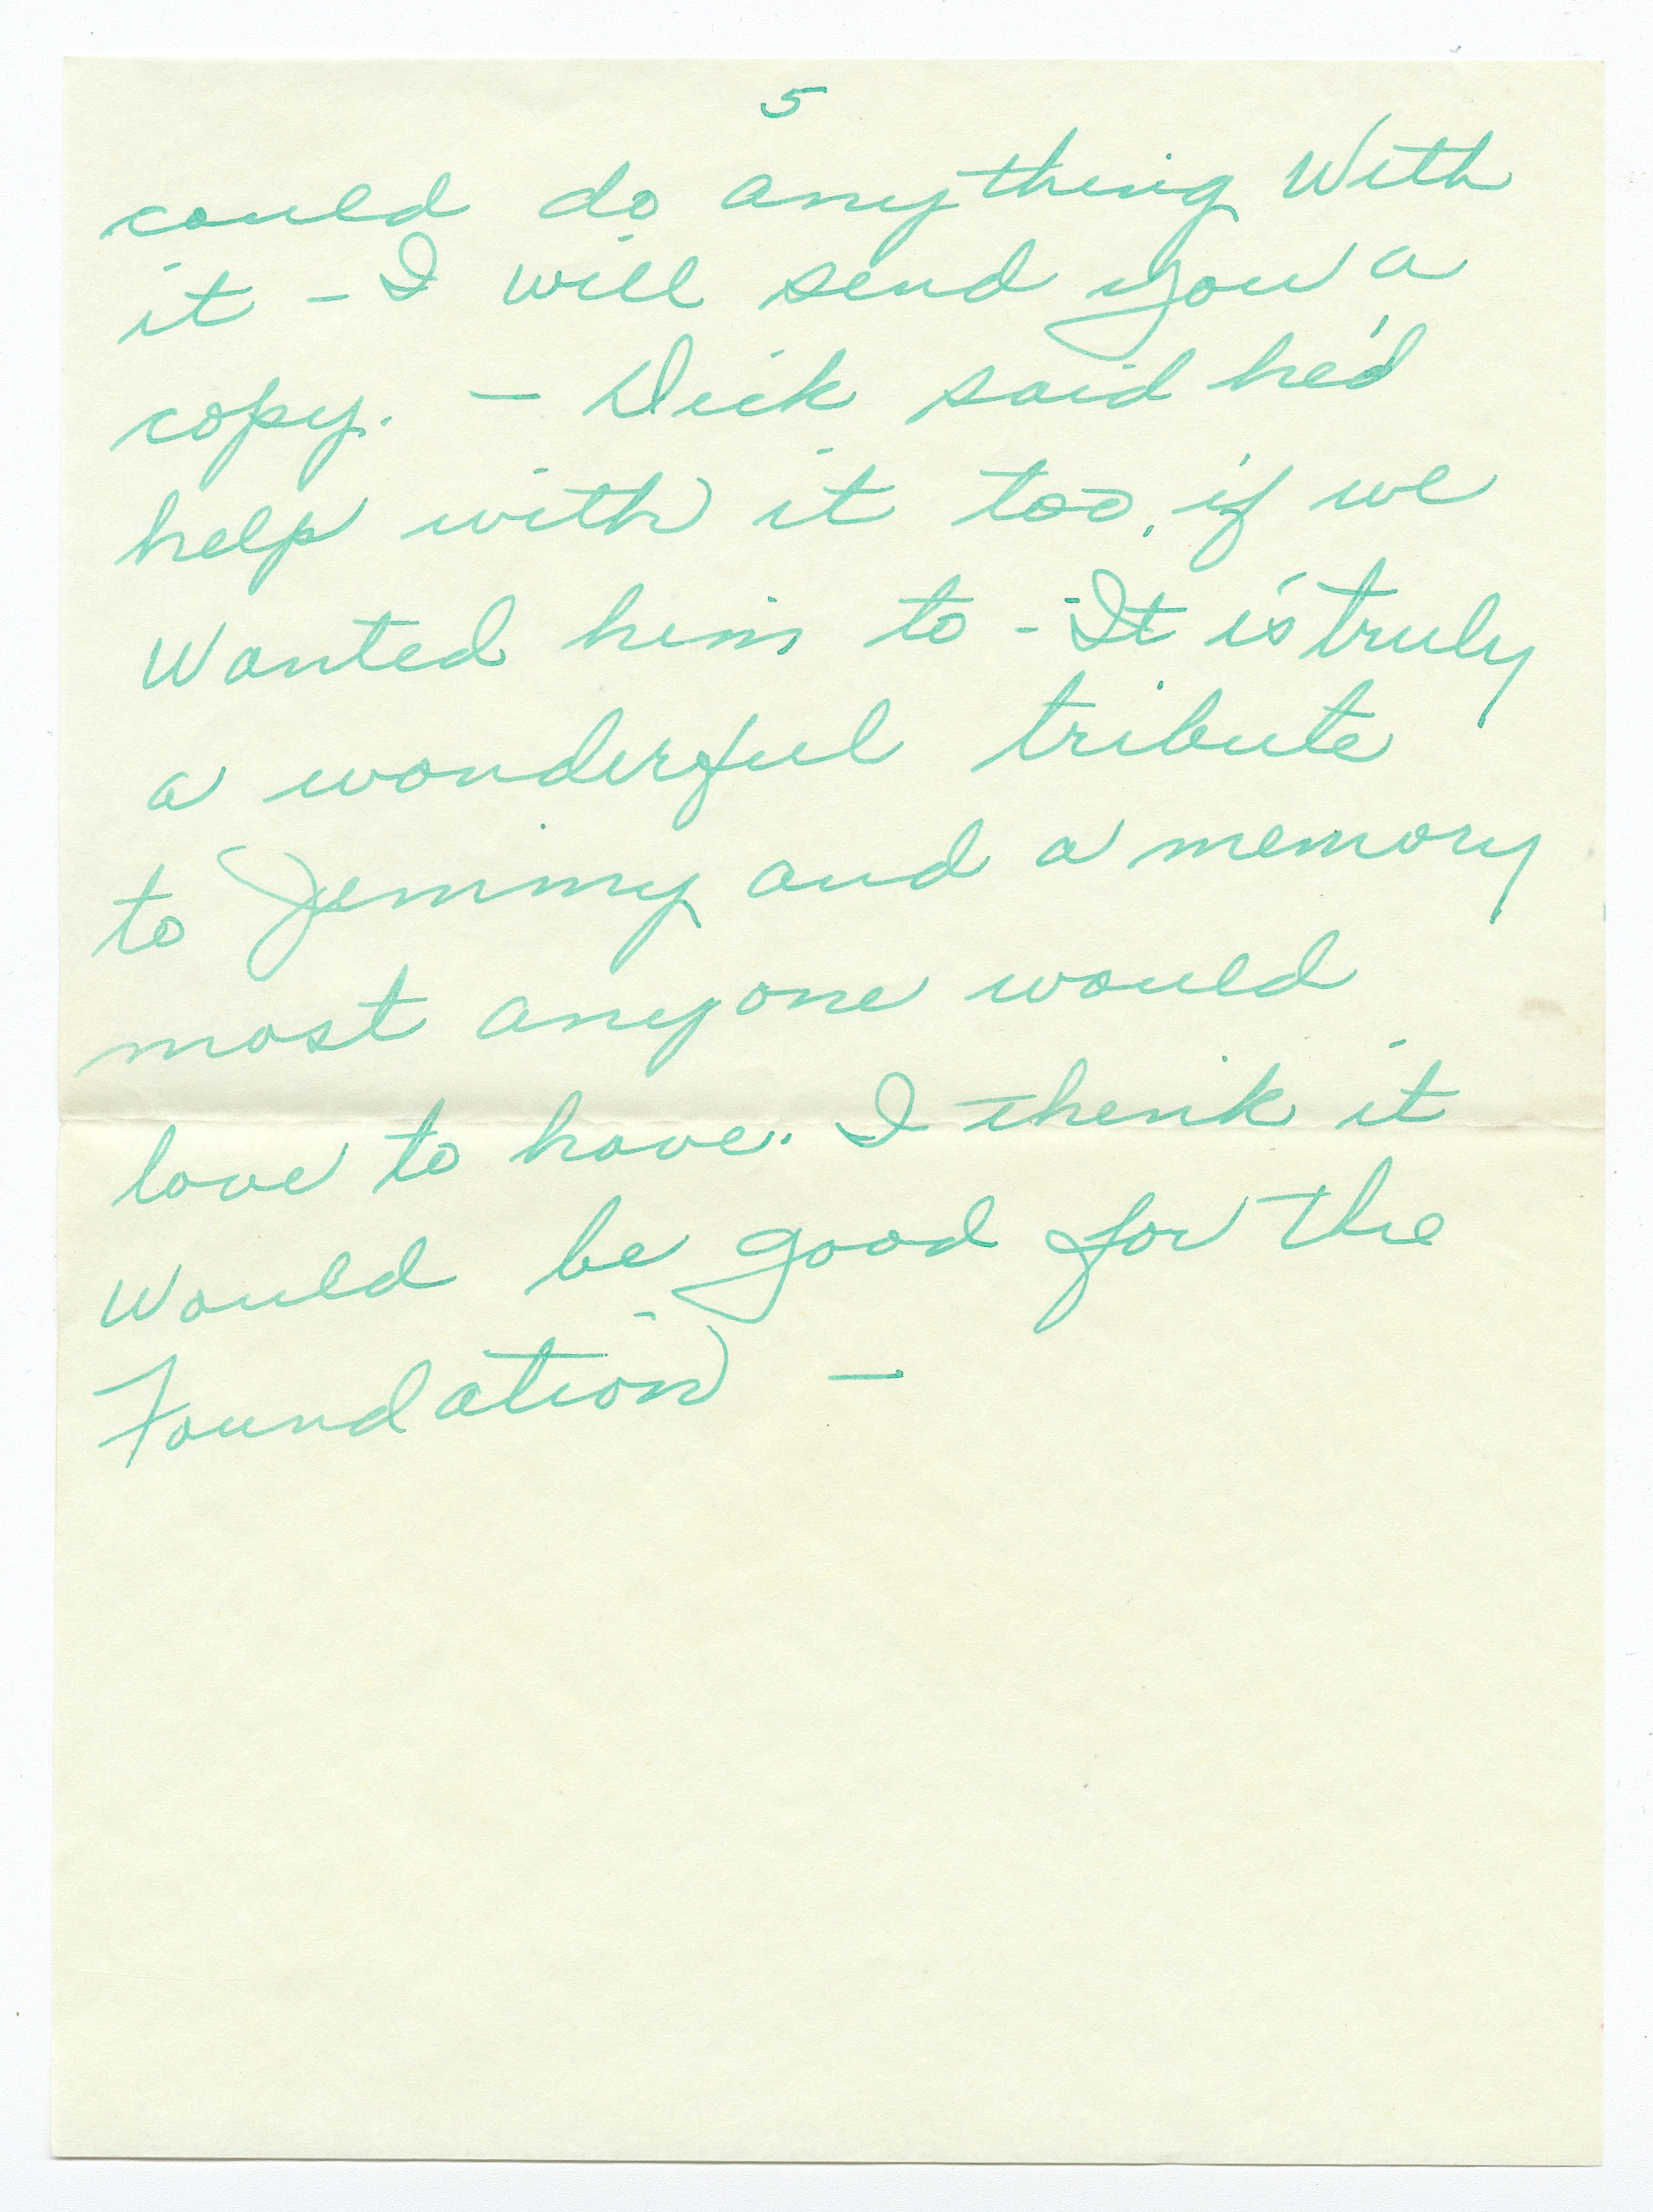 5
could do anything With
it - I will send you a
copy. - Dick said he'd
help with it too, if we
Wanted him to - It is truly
a wonderful tribute
to Jimmy and a memory
most anyone would
love to have. I think it
Would be good for the
Foundation -